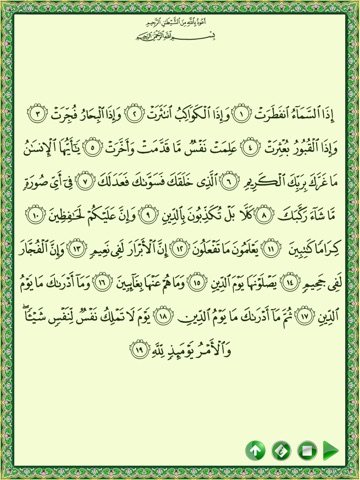 أعوذ بالله من الشيطان الرجيم
بِسْمِ اللَّهِ الرَّحْمَٰنِ الرَّحِيمِ
إِذَا السَّمَآءُ انفَطَرَتْ ١ وَإِذَا الْكَوَاكِبُ انتَثَرَتْ ٢ وَإِذَا الْبِحَارُ فُجِّرَتْ ٣
وَإِذَا الْقُبُورُ بُعْثِرَتْ ٤ عَلِمَتْ نَفْسٌ مَّا قَدَّمَتْ وَأَخَّرَتْ ٥ يَٰٓأَيُّهَا الْإِنسَٰنُ
مَا غَرَّكَ بِرَبِّكَ الْكَرِيمِ ٦ الَّذِى خَلَقَكَ فَسَوَّىٰكَ فَعَدَلَكَ ٧ فِىٓ أَىِّ صُورَةٍ
مَّا شَآءَ رَكَّبَكَ ٨ كَلَّا بَلْ تُكَذِّبُونَ بِالدِّينِ ٩ وَإِنَّ عَلَيْكُمْ لَحَٰفِظِينَ ١٠
كِرَامًا كَٰتِبِينَ ١١ يَعْلَمُونَ مَا تَفْعَلُونَ ١٢ إِنَّ الْأَبْرَارَ لَفِى نَعِيمٍ ١٣ وَإِنَّ الْفُجَّارَ
لَفِى جَحِيمٍ ١٤ يَصْلَوْنَهَا يَوْمَ الدِّينِ ١٥ وَمَا هُمْ عَنْهَا بِغَآئِبِينَ ١٦ وَمَآ أَدْرَىٰكَ مَا يَوْمُ
الدِّينِ ١٧ ثُمَّ مَآ أَدْرَىٰكَ مَا يَوْمُ الدِّينِ ١٨ يَوْمَ لَا تَمْلِكُ نَفْسٌ لِّنَفْسٍ شَيْـًٔا ۖ
وَالْأَمْرُ يَوْمَئِذٍ لِّلَّهِ ١٩